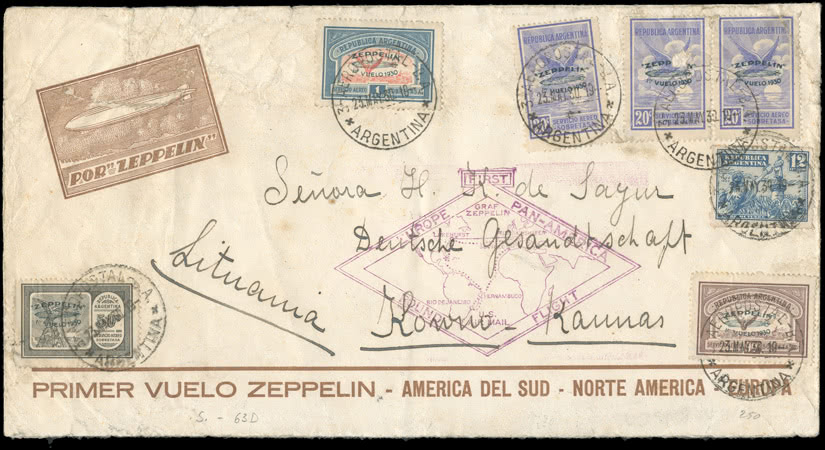 POR "ZEPPELIN"
REPUBLICA ARGENTINA
"ZEPPELIN"
1er VUELO 1930
SERVICIO AEREO 1
ARGENTINA
REPUBLICA ARGENTINA
"ZEPPELIN"
1er VUELO 1930
20c SERVICIO AEREO
SOBRETASA
23 MAY 30-19
ARGENTINA
REPUBLICA ARGENTINA
"ZEPPELIN"
1er VUELO 1930
20c SERVICIO AEREO
SOBRETASA
REPUBLICA ARGENTINA
"ZEPPELIN"
1er VUELO 1930
20c SERVICIO AEREO
SOBRETASA
ARGENTINA
REPUBLICA
ARGENTINA
12
FIRST
EUROPE PAN-AMERICA
GRAF
ZEPPELIN
LAKEHURST
RIO DE JANEIRO
PERNAMBUCO
ROUND FLIGHT
U.S.
MAIL
Señora H. K. de Sayur
Deutsche Gesandtschaft
Lituania
Kowno - Kaunas
ZEPPELIN
1er VUELO 1930
REPUBLICA
ARGENTINA
SERVICIO
AEREO
SOBRETASA
ARGENTINA
REPUBLICA ARGENTINA
"ZEPPELIN"
1er VUELO 1930
23 MAY 30-19
ARGENTINA
PRIMER VUELO ZEPPELIN - AMERICA DEL SUD - NORTE AMERICA - EUROPA
S. - 63D
250